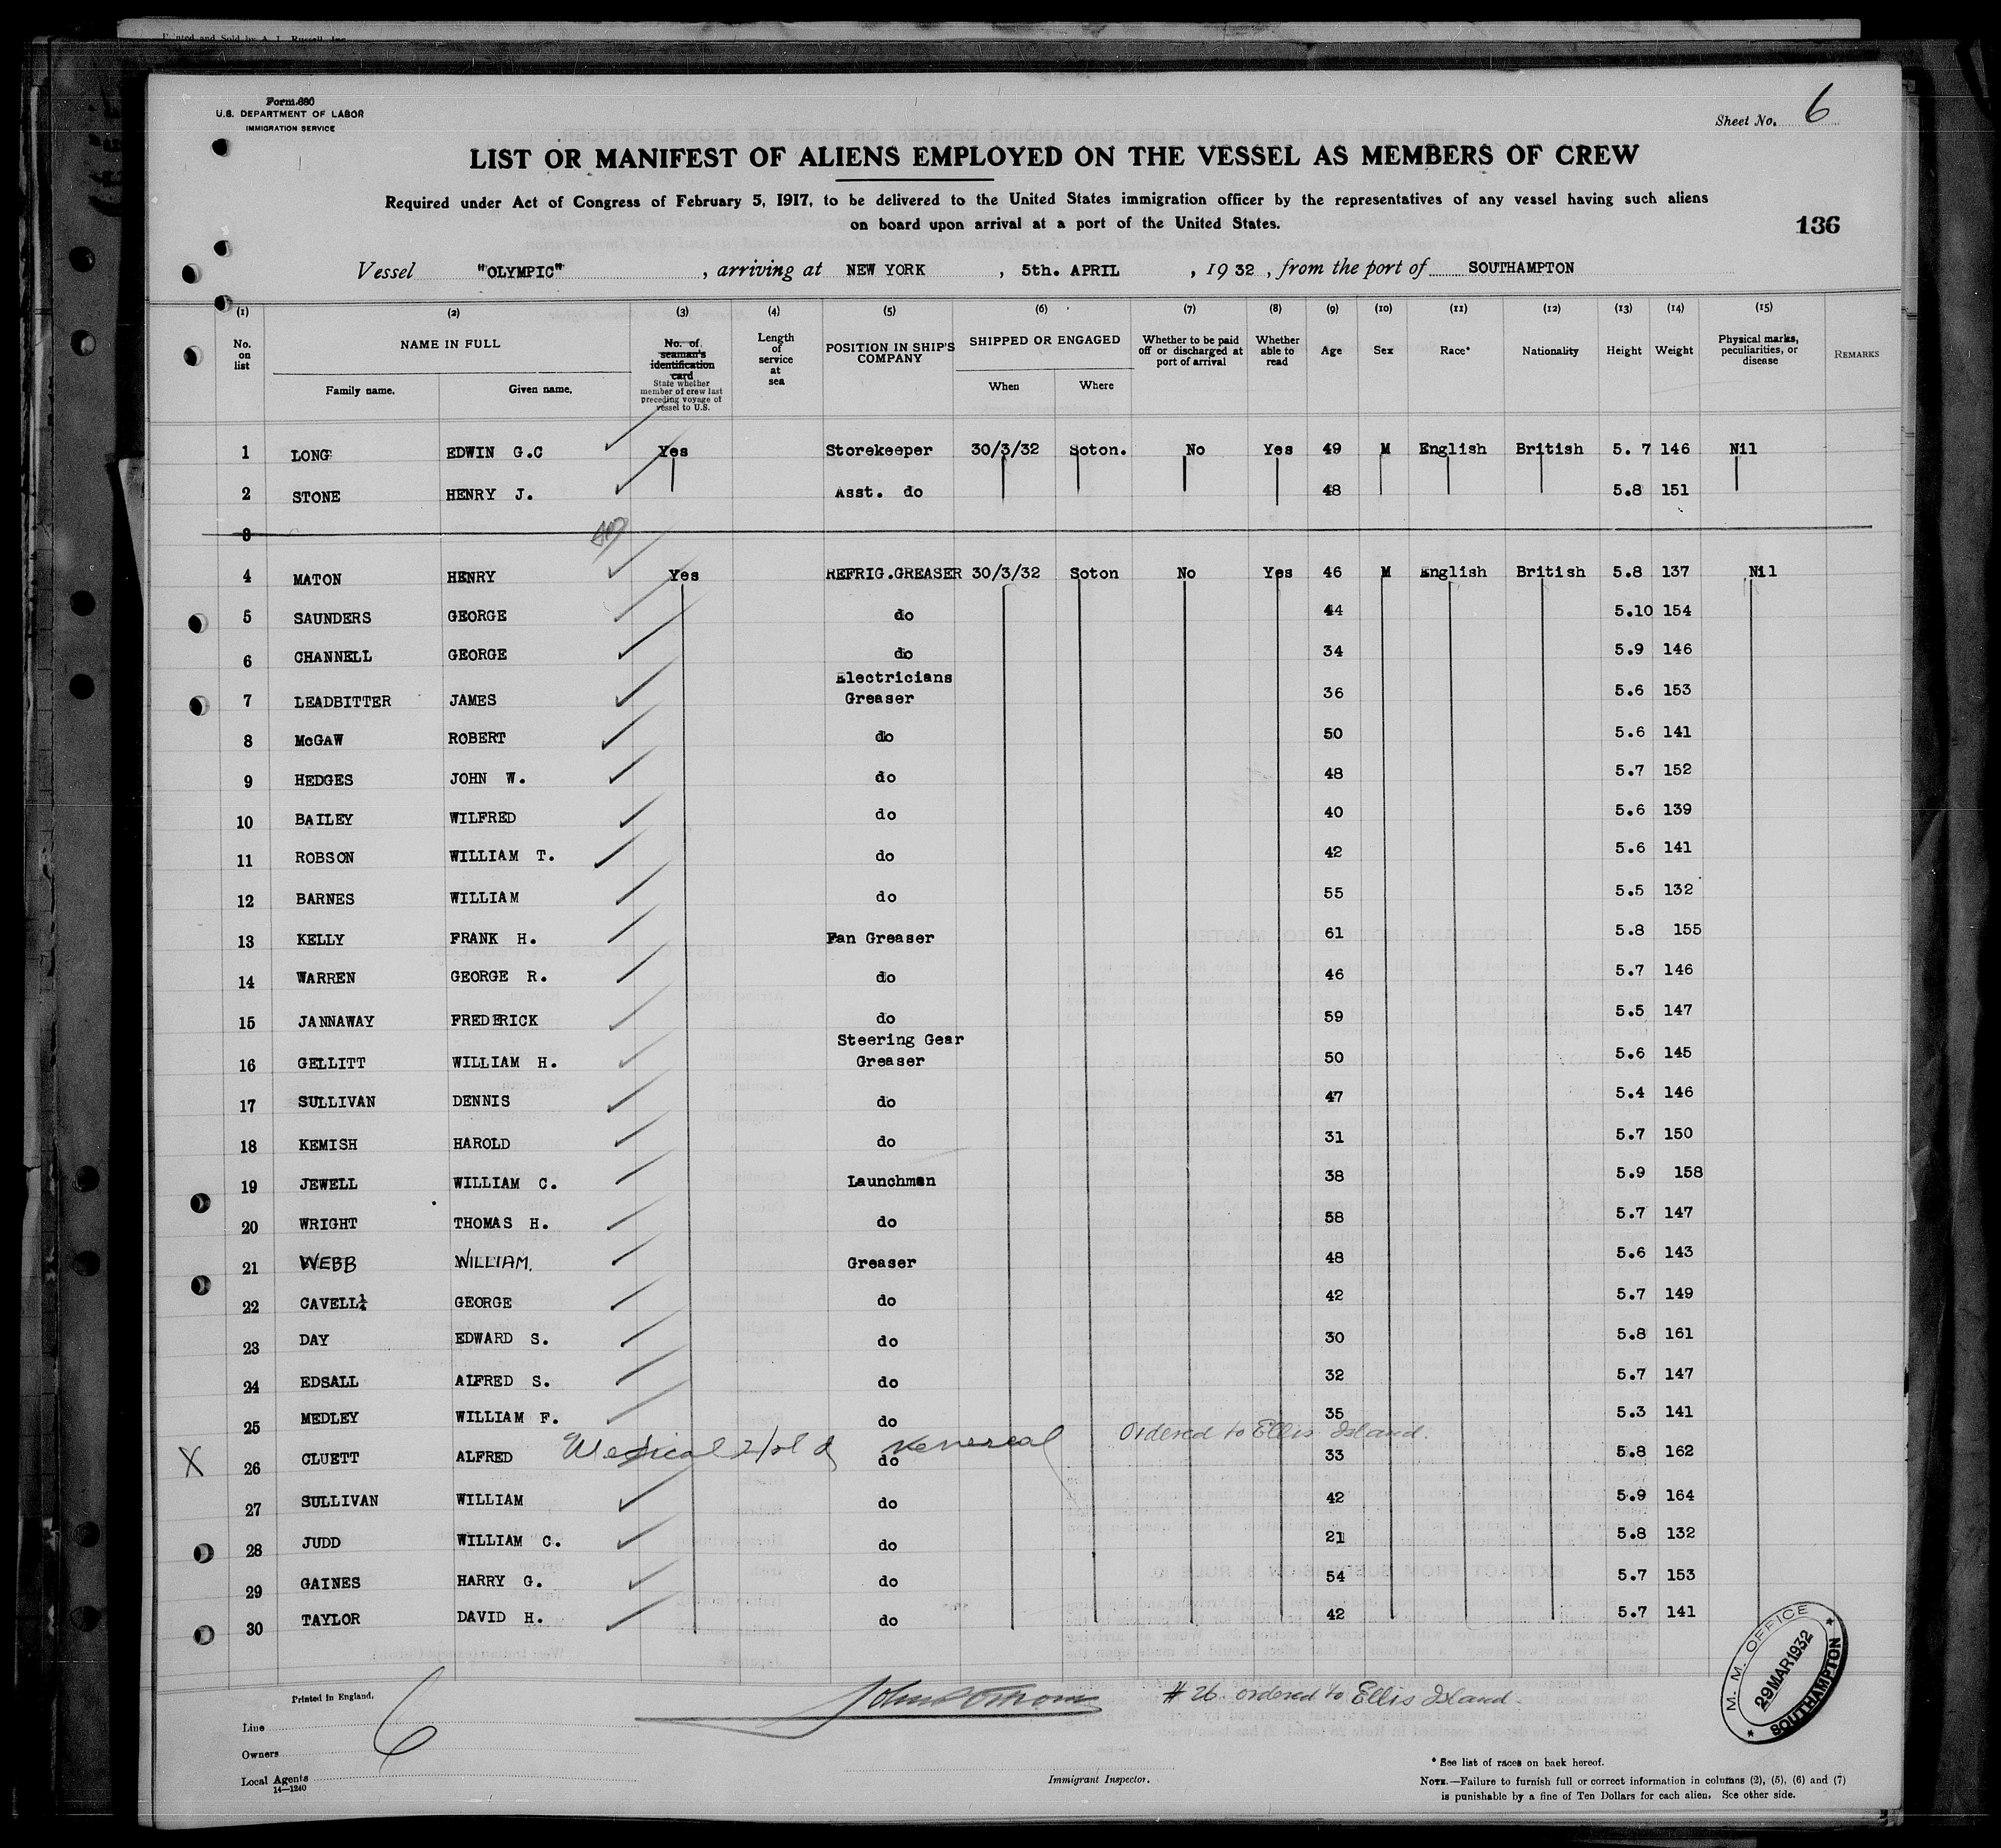 Printed and Sold by A. L. Russell, Inc.
Form 680
U.S. DEPARTMENT OF LABOR
IMMIGRATION SERVICE
Sheet No. 6
LIST OR MANIFEST OF ALIENS EMPLOYED ON THE VESSEL AS MEMBERS OF CREW
Required under Act of Congress of February 5, 1917, to be delivered to the United States immigration officer by the representatives of any vessel having such aliens
on board upon arrival at a port of the United States.
136
Vessel "OLYMPIC", arriving at NEW YORK, 5th. APRIL, 1932, from the port of SOUTHAMPTON
(1) (2) (3) (4) (5) (6) (7) (8) (9) (10) (11) (12) (13) (14) (15)
No. on list NAME IN FULL Family name. Given name. No. of seaman's identification card State whether member of crew last preceding voyage of vessel to U.S. Length of service at sea POSITION IN SHIP'S COMPANY SHIPPED OR ENGAGED When Where Whether to be paid off or discharged at port of arrival Whether able to read Age Sex Race* Nationality Height Weight Physical marks, peculiarities, or disease REMARKS
1 LONG EDWIN G.C Yes Storekeeper 30/3/32 Soton. No Yes 49 M English British 5.7 146 Nil
2 STONE HENRY J. Asst. do 48 5.8 151
3
4 MATON HENRY Yes REFRIG.GREASER 30/3/32 Soton No Yes 46 M English British 5.8 137 Nil
5 SAUNDERS GEORGE do 44 5.10 154
6 CHANNELL GEORGE do 34 5.9 146
Electricians
7 LEADBITTER JAMES Greaser 36 5.6 153
8 McGAW ROBERT do 50 5.6 141
9 HEDGES JOHN W. do 48 5.7 152
10 BAILEY WILFRED do 40 5.6 139
11 ROBSON WILLIAM T. do 42 5.6 141
12 BARNES WILLIAM do 55 5.5 132
13 KELLY FRANK H. Fan Greaser 61 5.8 155
14 WARREN GEORGE R. do 46 5.7 146
15 JANNAWAY FREDERICK do 59 5.5 147
Steering Gear
16 GELLITT WILLIAM H. Greaser 50 5.6 145
17 SULLIVAN DENNIS do 47 5.4 146
18 KEMISH HAROLD do 31 5.7 150
19 JEWELL WILLIAM C. Launchman 38 5.9 158
20 WRIGHT THOMAS H. do 58 5.7 147
21 WEBB WILLIAM. Greaser 48 5.6 143
22 CAVELL¼ GEORGE do 42 5.7 149
23 DAY EDWARD S. do 30 5.8 161
24 EDSALL ALFRED S. do 32 5.7 147
25 MEDLEY WILLIAM F. do 35 5.3 141
Medical Hold Venereal Ordered to Ellis Island.
X 26 CLUETT ALFRED do 33 5.8 162
27 SULLIVAN WILLIAM do 42 5.9 164
28 JUDD WILLIAM C. do 21 5.8 132
29 GAINES HARRY G. do 54 5.7 153
30 TAYLOR DAVID H. do 42 5.7 141
M. M. OFFICE
29 MAR 1932
SOUTHAMPTON
Printed in England.
# 26 ordered to Ellis Island.
Line
6
Owners
Local Agents
14—1240
Immigrant Inspector.
* See list of races on back hereof.
NOTE.—Failure to furnish full or correct information in columns (2), (5), (6) and (7)
is punishable by a fine of Ten Dollars for each alien. See other side.